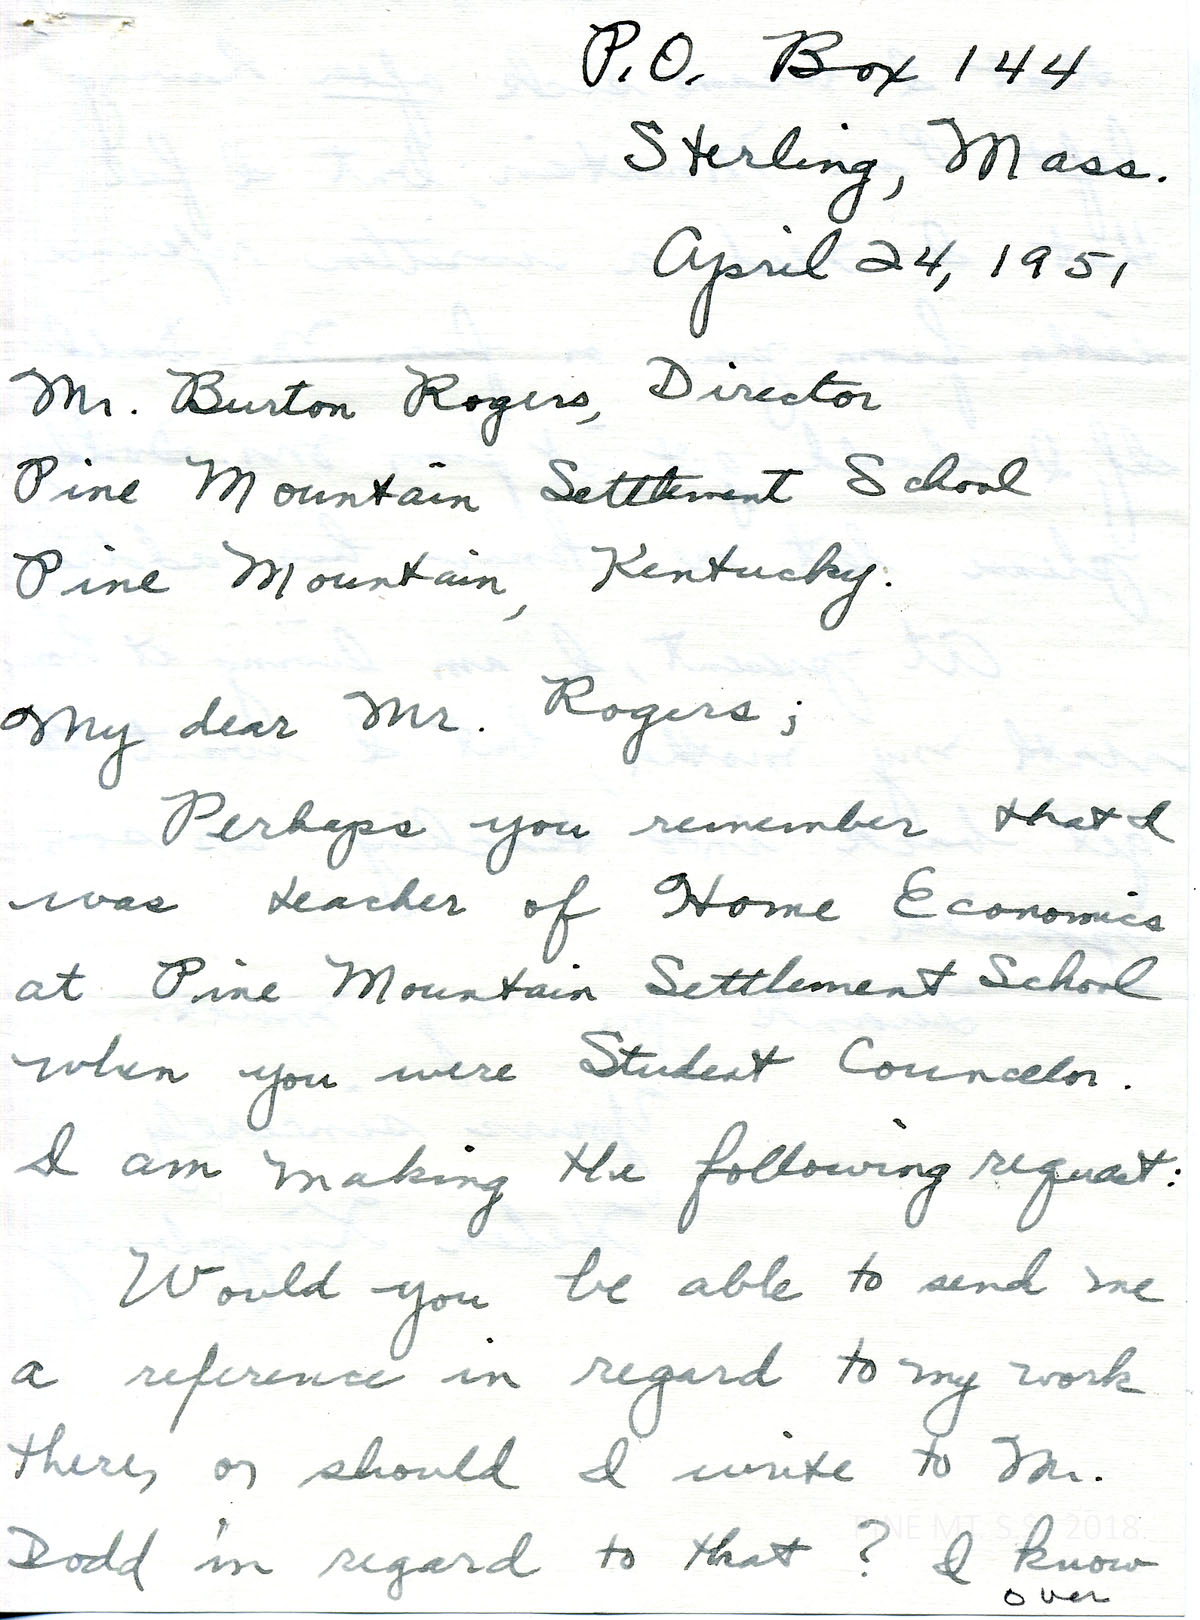 P.O. Box 144
Sterling, Mass.
April 24, 1951
Mr. Burton Rogers, Director
Pine Mountain Settlement School
Pine Mountain, Kentucky.
My dear Mr. Rogers;
Perhaps you remember that I
was teacher of Home Economics
at Pine Mountain Settlement School
when you were Student Councelor.
I am making the following request:
Would you be able to send me
a reference in regard to my work
there, or should I write to Mr.
Dodd in regard to that? I know
over
PINE MT. S.S. 2018